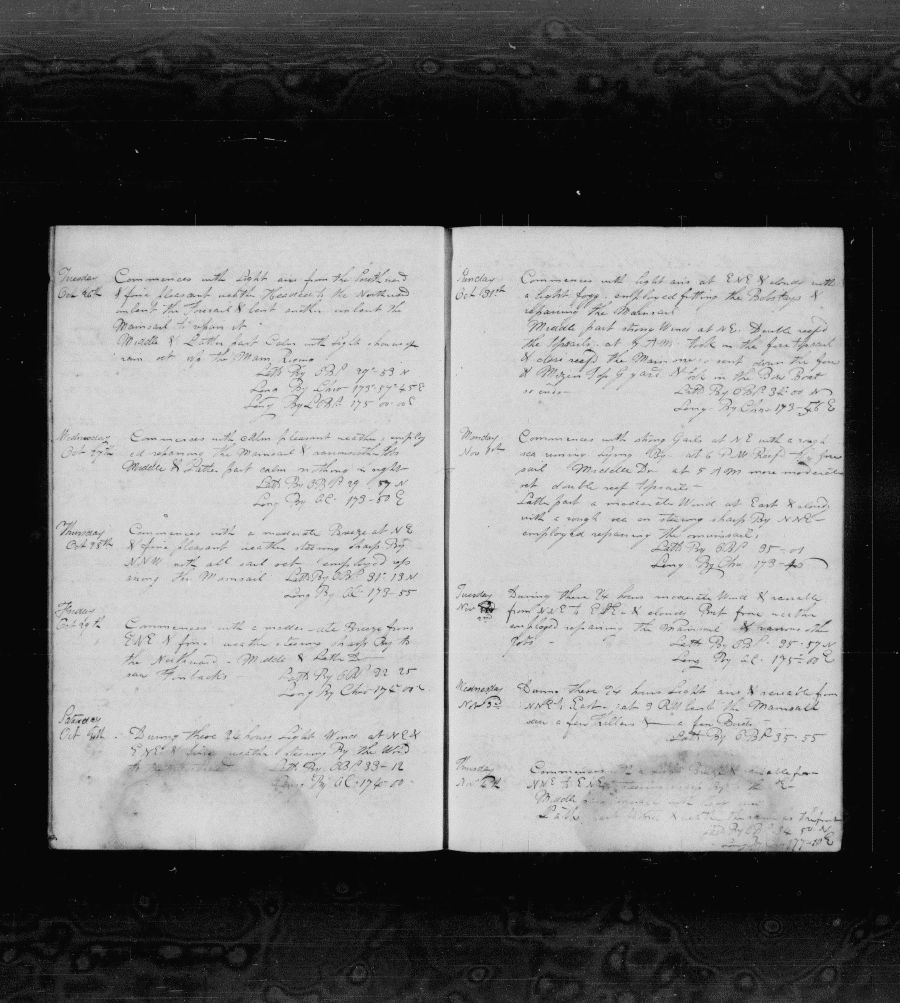 Tuesday Commences with light airs from the Southward
Oct 26th & fine pleasant weather Headed to the Northward
unbent the Foresail & bent another unbent the
Mainsail to repair it
Middle & Latter part Calm with light showers of
rain set up the Main Riging
Latt By OBS 29-53 N
Long By Chro 175-57-45 E
Long By L OBS 175 00 00 E
Wednesday Commences with calm pleasant weather employ
Oct 27th ed repairing the Mainsail &
Middle & Latter part calm nothing in sight
Latt By OBS 29 57 N
Long By CC 173-50 E
Thursday Commences with a moderate Breeze at NE
Oct 28th & fine pleasant weather steering sharp By
NNW with all sail out employed rep
airing the Mainsail Latt By OBS 31-13 N
Long By CC 173-55
Friday
Oct 29th Commences with a moderate Breeze from
ENE & fine weather steering sharp By to
the Northward - Middle & Latter Do
saw Finbacks Latt By OBS 32 25
Long By Chro 174-00 E
Saturday
Oct 30th During these 24 hours light Winds at NE &
ENE & fine weather steering By the Wind
to Latt By OBS 33-12
Long By CC 174-00
Sunday Commences with light airs at ENE & clouds with
Oct 31st a light fogg employed fitting the Bobstays &
repairing the Mainsail
Middle part strong Winds at NE Double reefd
the topsails at 7 AM took in the fore topsail
& close reefd the Main one sent down the fore
& Mizen T G yard & took in the Bow Boat
so ends
Latt By OBS 34-00 N
Long By Chro 173-56 E
Monday Commences with strong Gails at NE with a rough
Nov 1st sea running lying By at 6 PM Reef fore
sail Middle Do at 5 AM more moderate
set double reef topsails
Latter part a moderate Wind at East & cloudy
with a rough sea on steering sharp By NNE
employed repairing the mainsail
Latt By OBS 35-01
Long By Chro 173-40
Tuesday During these 24 hours moderate Wind & variable
Nov from NNE to ENE & clouds But fine weather
employed repairing the Mainsail & various other
Jobs
Latt By OBS 35-57 N
Long By CC 175-00 E
Wednesday During these 24 hours light airs & variable from
Nov 3d NNE to East at 9 AM bent the Mainsail
saw a few Killers & a few Birds
Latt By OBS 35-55
Thursday Commences Breeze & variable from
Nov NNE to ENE
Middle
Latt
Long 177-10 E